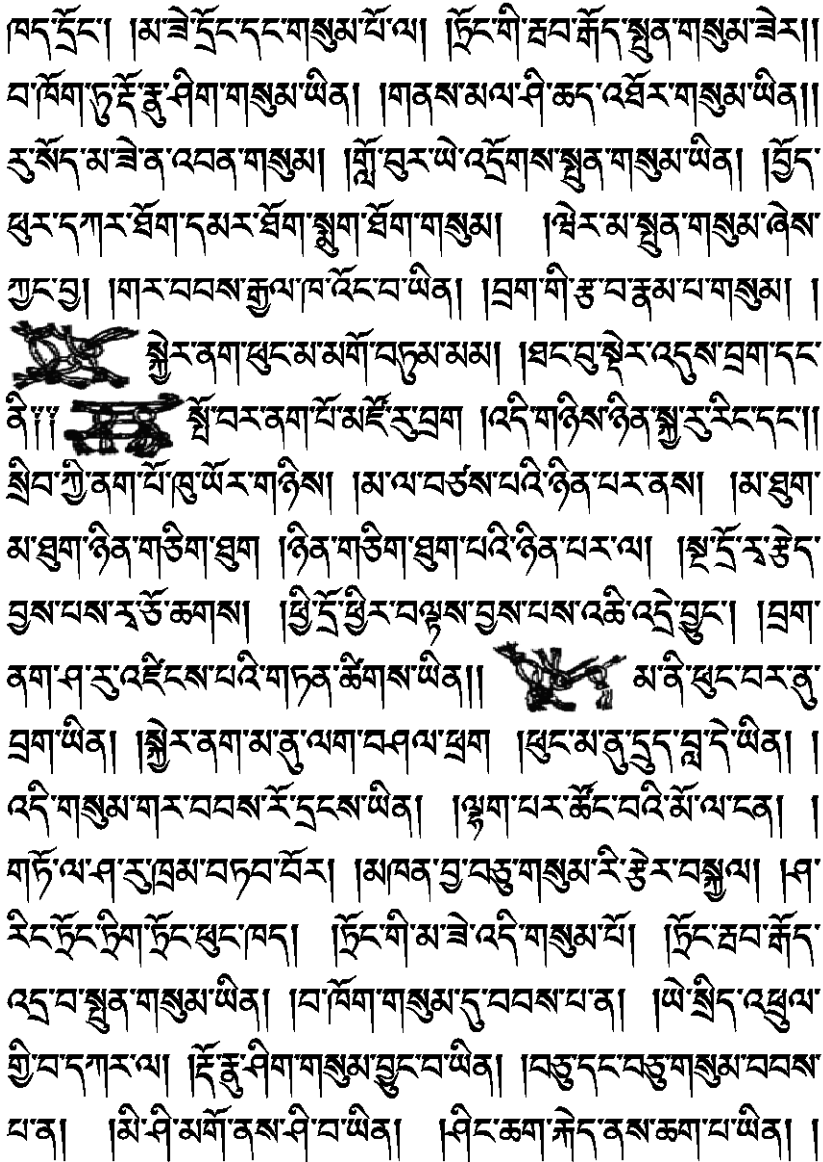 ཁད་དྲོང་། །མ་ཟེ་དྲོང་དང་གསུམ་པོ་ལ། །ཏྲོང་གི་རྦབ་རྒོད་སྤུན་གསུམ་ཟེར།།
བ་ཁོག་ཏུ་རྡོ་རྣུ་ཤིག་གསུམ་ཡིན། །གནས་མལ་ཤི་ཆད་འཐོར་གསུམ་ཡིན།།
རུ་སོད་མ་ཟེ་ན་འབན་གསུམ། །གློ་བུར་ཡེ་འདྲོགས་སྤུན་གསུམ་ཡིན། །བྱོད་
ཕུར་དཀར་ཐོག་དམར་ཐོག་སྨུག་ཐོག་གསུམ། །ཝེར་མ་སྤུན་གསུམ་ཞེས་
ཀྱང་བྱ། །གར་བབས་རྒྱལ་ཁ་འོང་བ་ཡིན། །བྲག་གི་རྩ་བ་རྣམ་པ་གསུམ། །
སྐྱེར་ནག་ཕུང་མ་མགོ་བཏུམ་མམ། །ཐང་བུ་སྡེར་འདུས་བྲག་དང་
ནི༔༔ སྤོ་བར་ནག་པོ་མཛོ་རུ་བྲག །འདི་གཉིས་ཉིན་སྐྱ་རུ་རིང་དང་།།
སྲིབ་ཀྱི་ནག་པོ་ཁུ་ཡོར་གཉིས། །མ་ལ་བཙས་པའི་ཉིན་པར་ནས། །མ་ཐུག་
མ་ཐུག་ཉིན་གཅིག་ཐུག །ཉིན་གཅིག་ཐུག་པའི་ཉིན་པར་ལ། །སྔ་དྲོ་རྭ་རྩེད་
བྱས་པས་རྭ་ཅོ་ཆགས། །ཕྱི་དྲོ་ཕྱིར་བལྟས་བྱས་པས་འཆི་འདྲེ་བྱུང་། །བྲག་
ནག་ཤ་རུ་འཛིངས་པའི་གཏན་ཚིགས་ཡིན།། མ་ནི་ཕུང་བར་ནུ་
བྲག་ཡིན། །སྐྱེར་ནག་མ་ནུ་ལག་བཤལ་ཕྲག །ཕུང་མ་ནུ་དྲུད་བླ་དེ་ཡིན། །
འདི་གསུམ་གར་བབས་རོ་དྲངས་ཡིན། །ལྷག་པར་ཚོང་བའི་མོ་ལ་ངན། །
གཏོ་ལ་ཤ་རུ་ཁྲམ་བཏབ་བོར། །མཁན་བྱ་བཅུ་གསུམ་རི་རྩེར་བསྐྱལ། །ཤ་
རིང་ཏྲོང་ཏྲིག་ཏྲོང་ཕུང་ཁད། །ཏྲོང་གི་མ་ཟེ་འདི་གསུམ་པོ། །ཏྲོང་རྦབ་རྒོད་
འདྲ་བ་སྤུན་གསུམ་ཡིན། །བ་ཁོག་གསུམ་དུ་བབས་པ་ན། །ཡེ་སྲིད་འཕྲུལ་
གྱི་བ་དཀར་ལ། །རྡོ་རྣུ་ཤིག་གསུམ་བྱུང་བ་ཡིན། །བཅུ་དང་བཅུ་གསུམ་བབས་
པ་ན། །མི་ཤི་མགོ་ནས་ཤི་བ་ཡིན། །ཤིང་ཆག་རྐེད་ནས་ཆག་པ་ཡིན། །